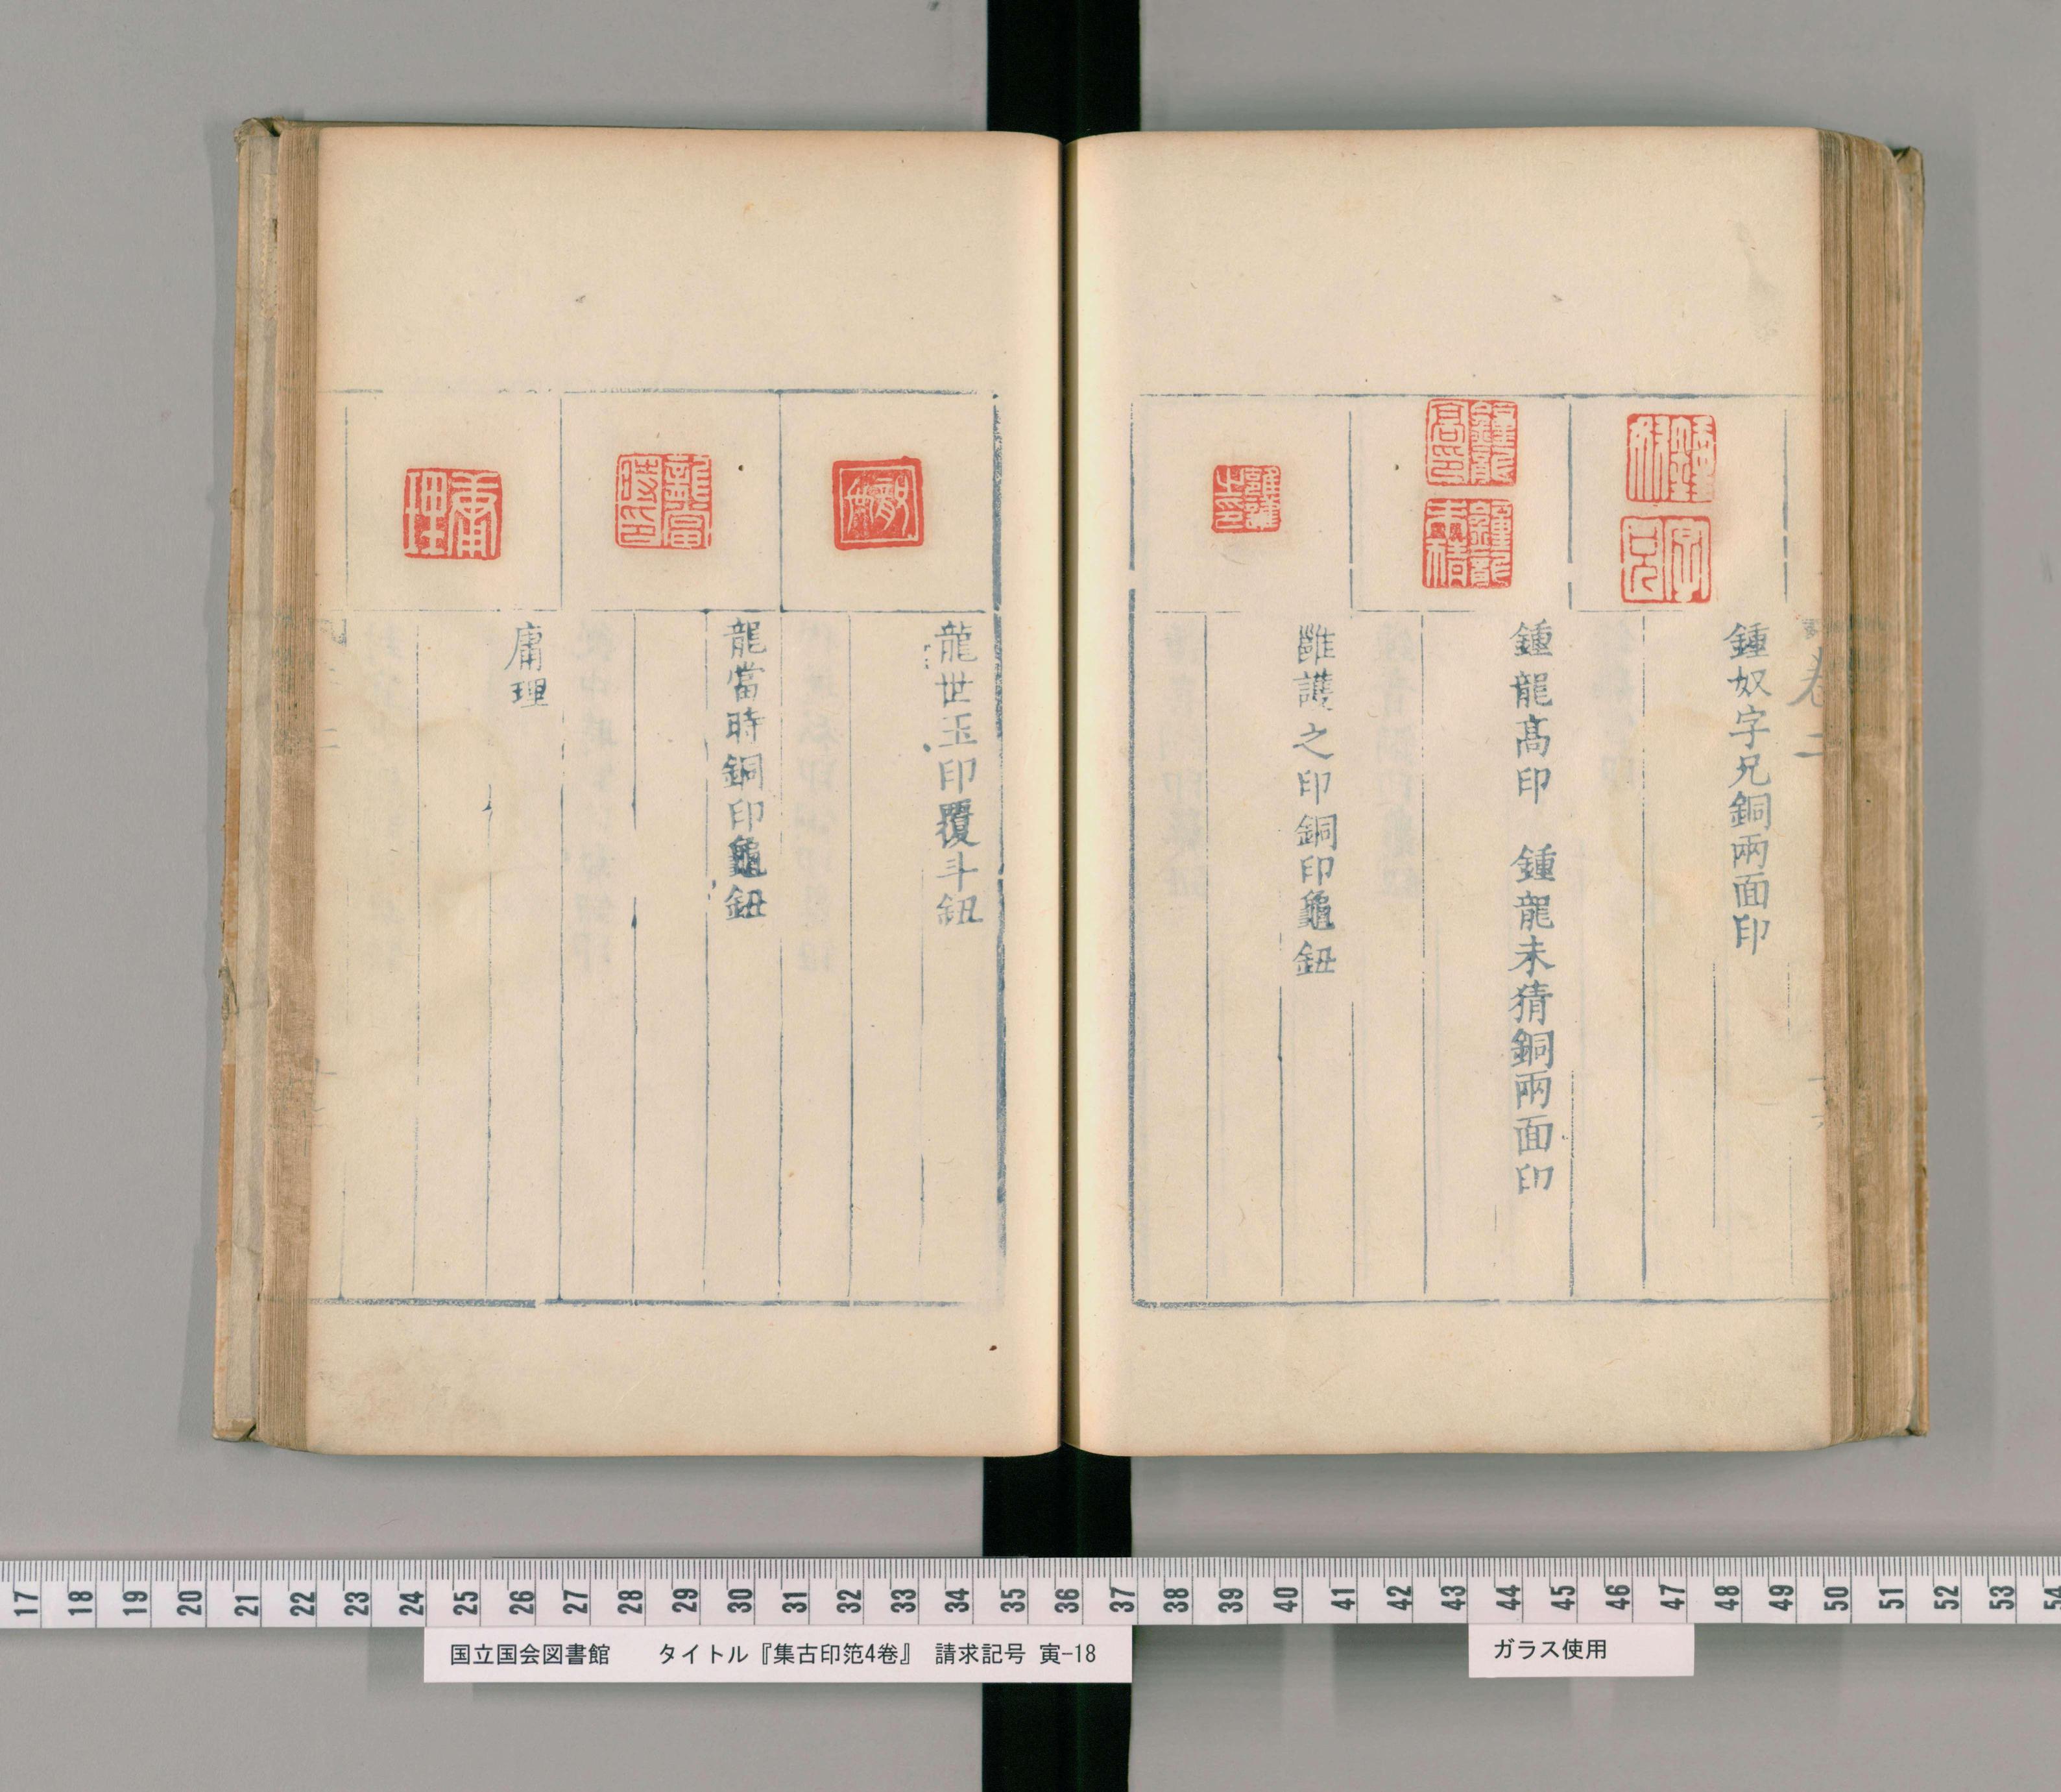 卷二
鍾奴字兄銅兩面印
鍾龍高印　鍾龍未猜銅兩面印
雝護之印銅印龜鈕
龍世玉印覆斗鈕
龍當時銅印龜鈕
庸理
17 18 19 20 21 22 23 24 25 26 27 28 29 30 31 32 33 34 35 36 37 38 39 40 41 42 43 44 45 46 47 48 49 50 51 52 53 54
国立国会図書館　タイトル『集古印笵4巻』　請求記号 寅-18
ガラス使用